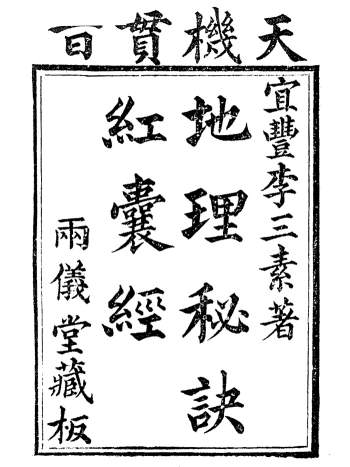 天機貫百
宜豐李三素著
地理秘訣
紅囊經
兩儀堂藏板